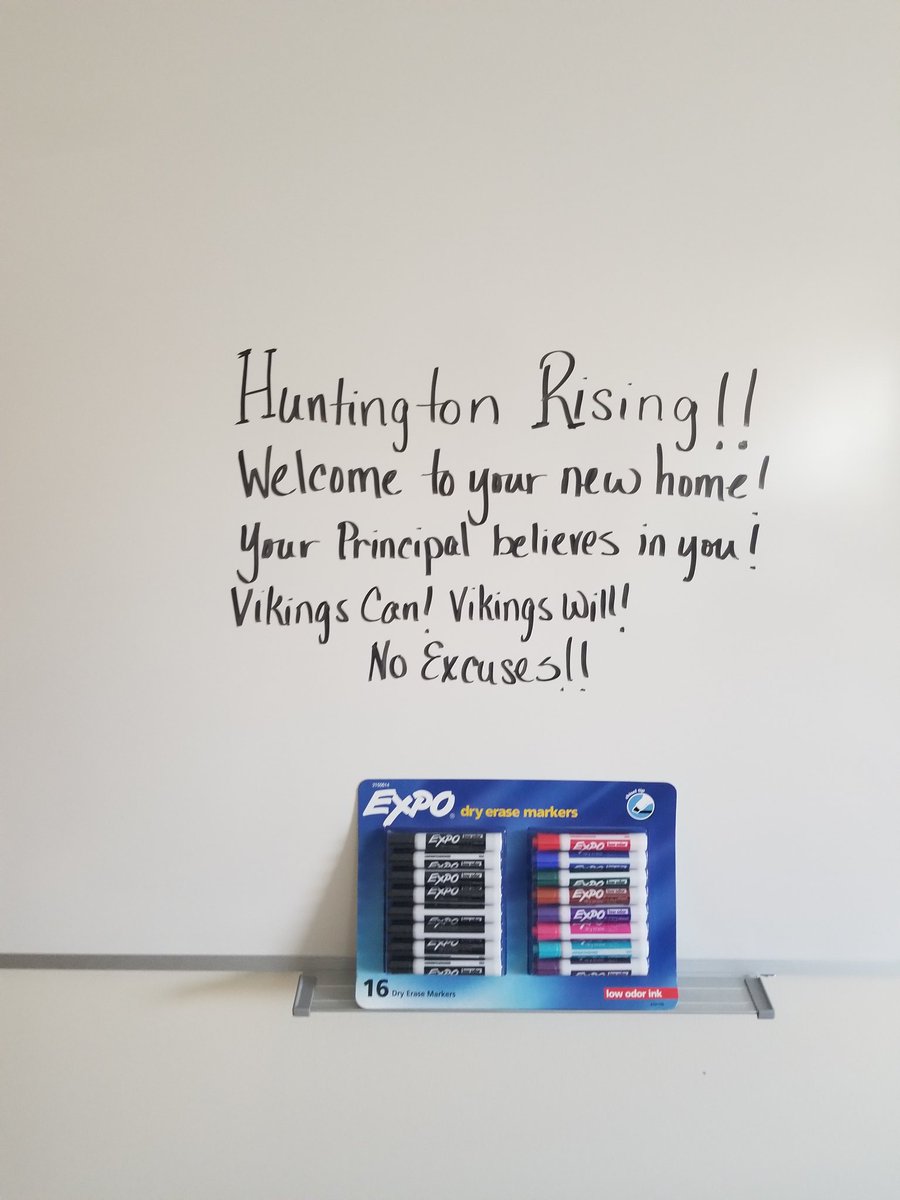 Huntington Rising!!
Welcome to your new home!
Your Principal believes in you!
Vikings Can! Vikings Will!
No Excuses!!
EXPO® dry erase markers
EXPO low odor
EXPO
EXPO
EXPO
EXPO
EXPO
EXPO low odor
EXPO
EXPO
EXPO low odor
16 Dry Erase Markers
low odor ink